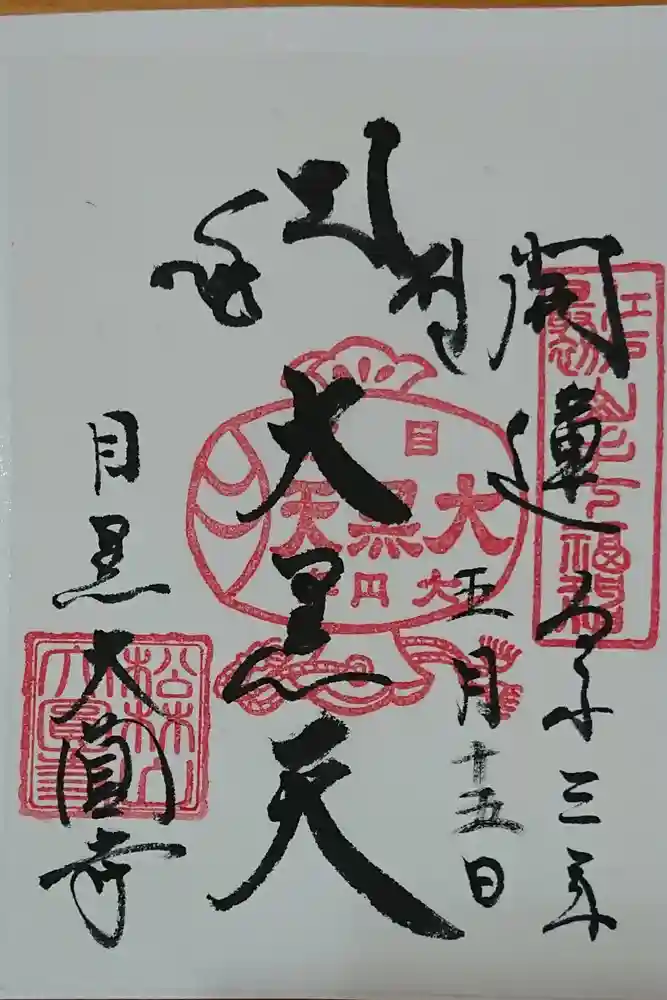 江戸最初山手七福神
開運
令和三年
五月十五日
目黒
大黒天
大円寺
大黒天
目黒大圓寺
松林山
大圓寺